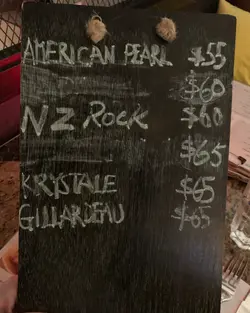 AMERICAN PEARL $55
$60
NZ ROCK $60
$65
KRYSTALE $65
GILLARDEAU $65